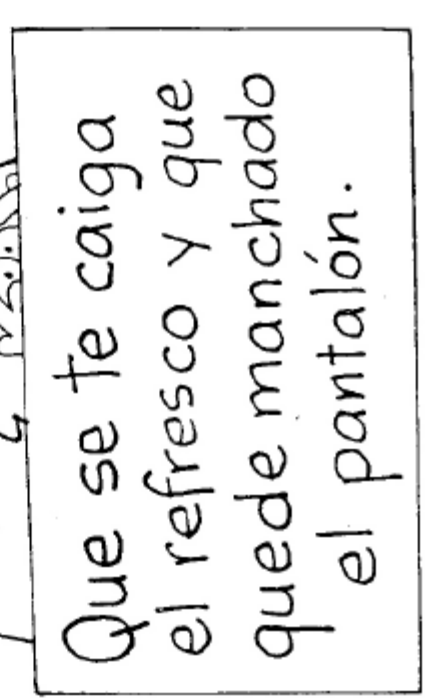 Que se te caiga
el refresco y que
quede manchado
el pantalón.